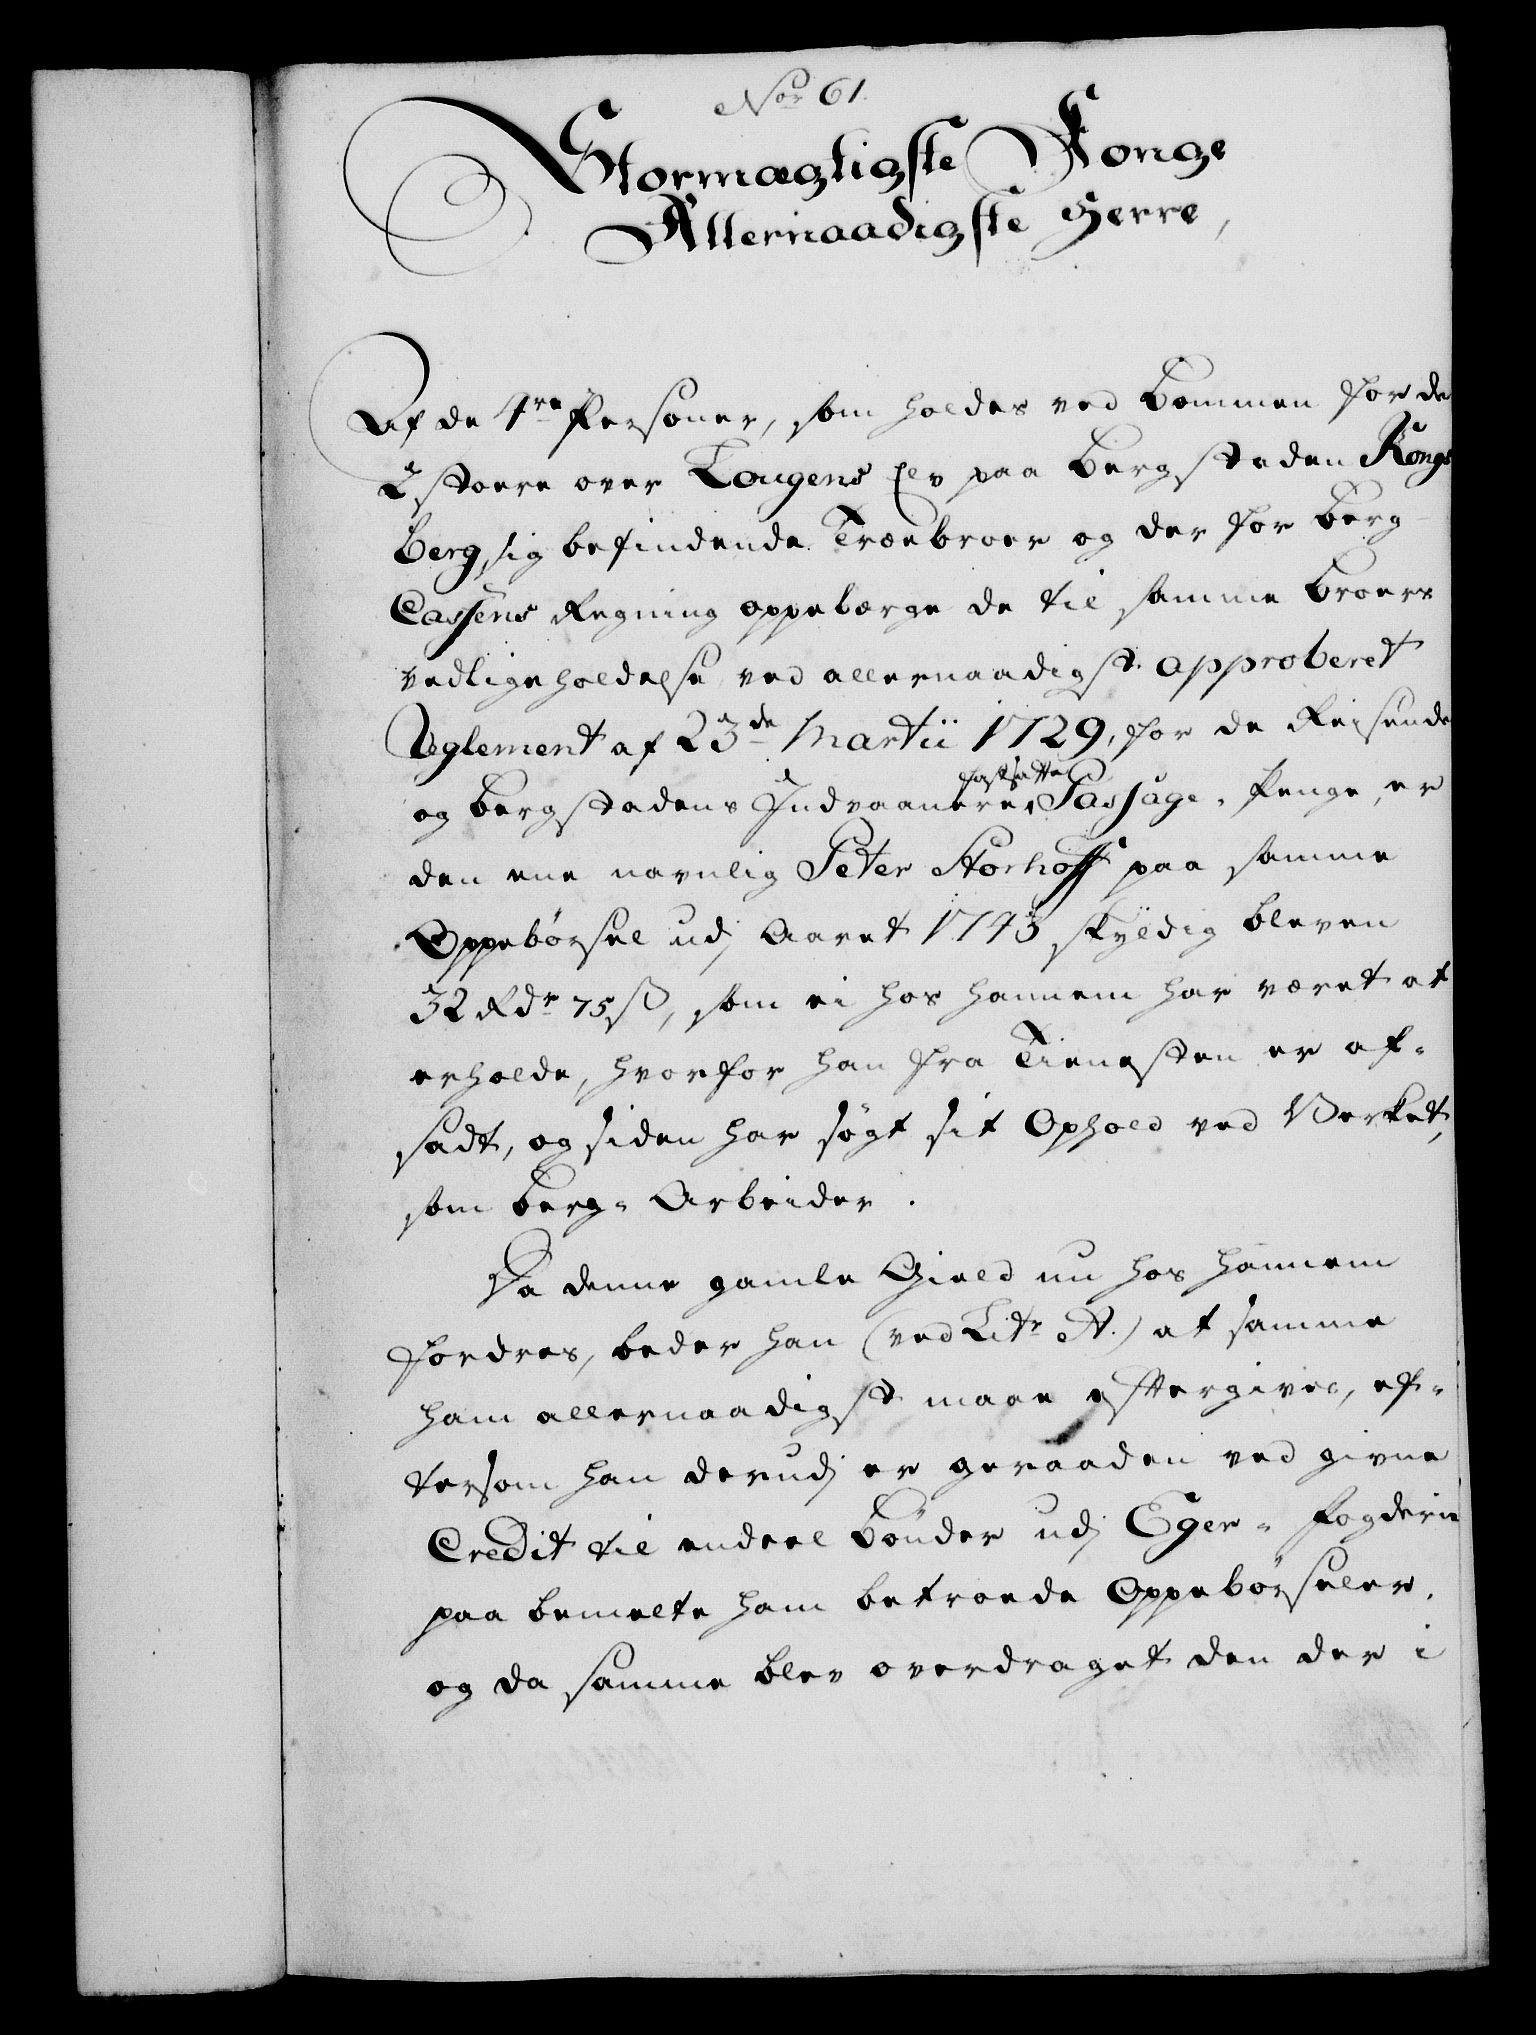 Nor 61.
Stormægtigste Konge
Allernaadigste Herre,
Af de 4re Personer, som holdes ved Bommen for de
2 stoere over Lougens Elv paa Bergstaden Kongs
berg sig befindende Træebroer og der for Berg
Cassens Regning oppebærge de til samme Broers
Vedligeholdelse ved allernaadigst approberet
Reglement af 23de Martii 1729, for de Reisende
fastsatte
og Bergstadens Indvaanere Passage-Penge, er
den ene navnlig Peter Storhoff paa samme
Oppebørsel udj Aaret 1743 skyldig bleven
32 Rdr 75 ß, som ei hos hannem har været at
erholde, hvorfor han fra Tienesten er af-
sadt, og siden har søgt sit Ophold ved Verket,
som Berg-Arbeider.
Da denne gamle Gield nu hos hannem
fordres, beder han (ved Litr A.) at samme
ham allernaadigst maae eftergives, ef-
tersom han derudj er geraaden ved givne
Credit til endeel Bønder udj Eger-Fogderie
paa bemelte ham betroede Oppebørseler,
og da samme blev overdraget den der i